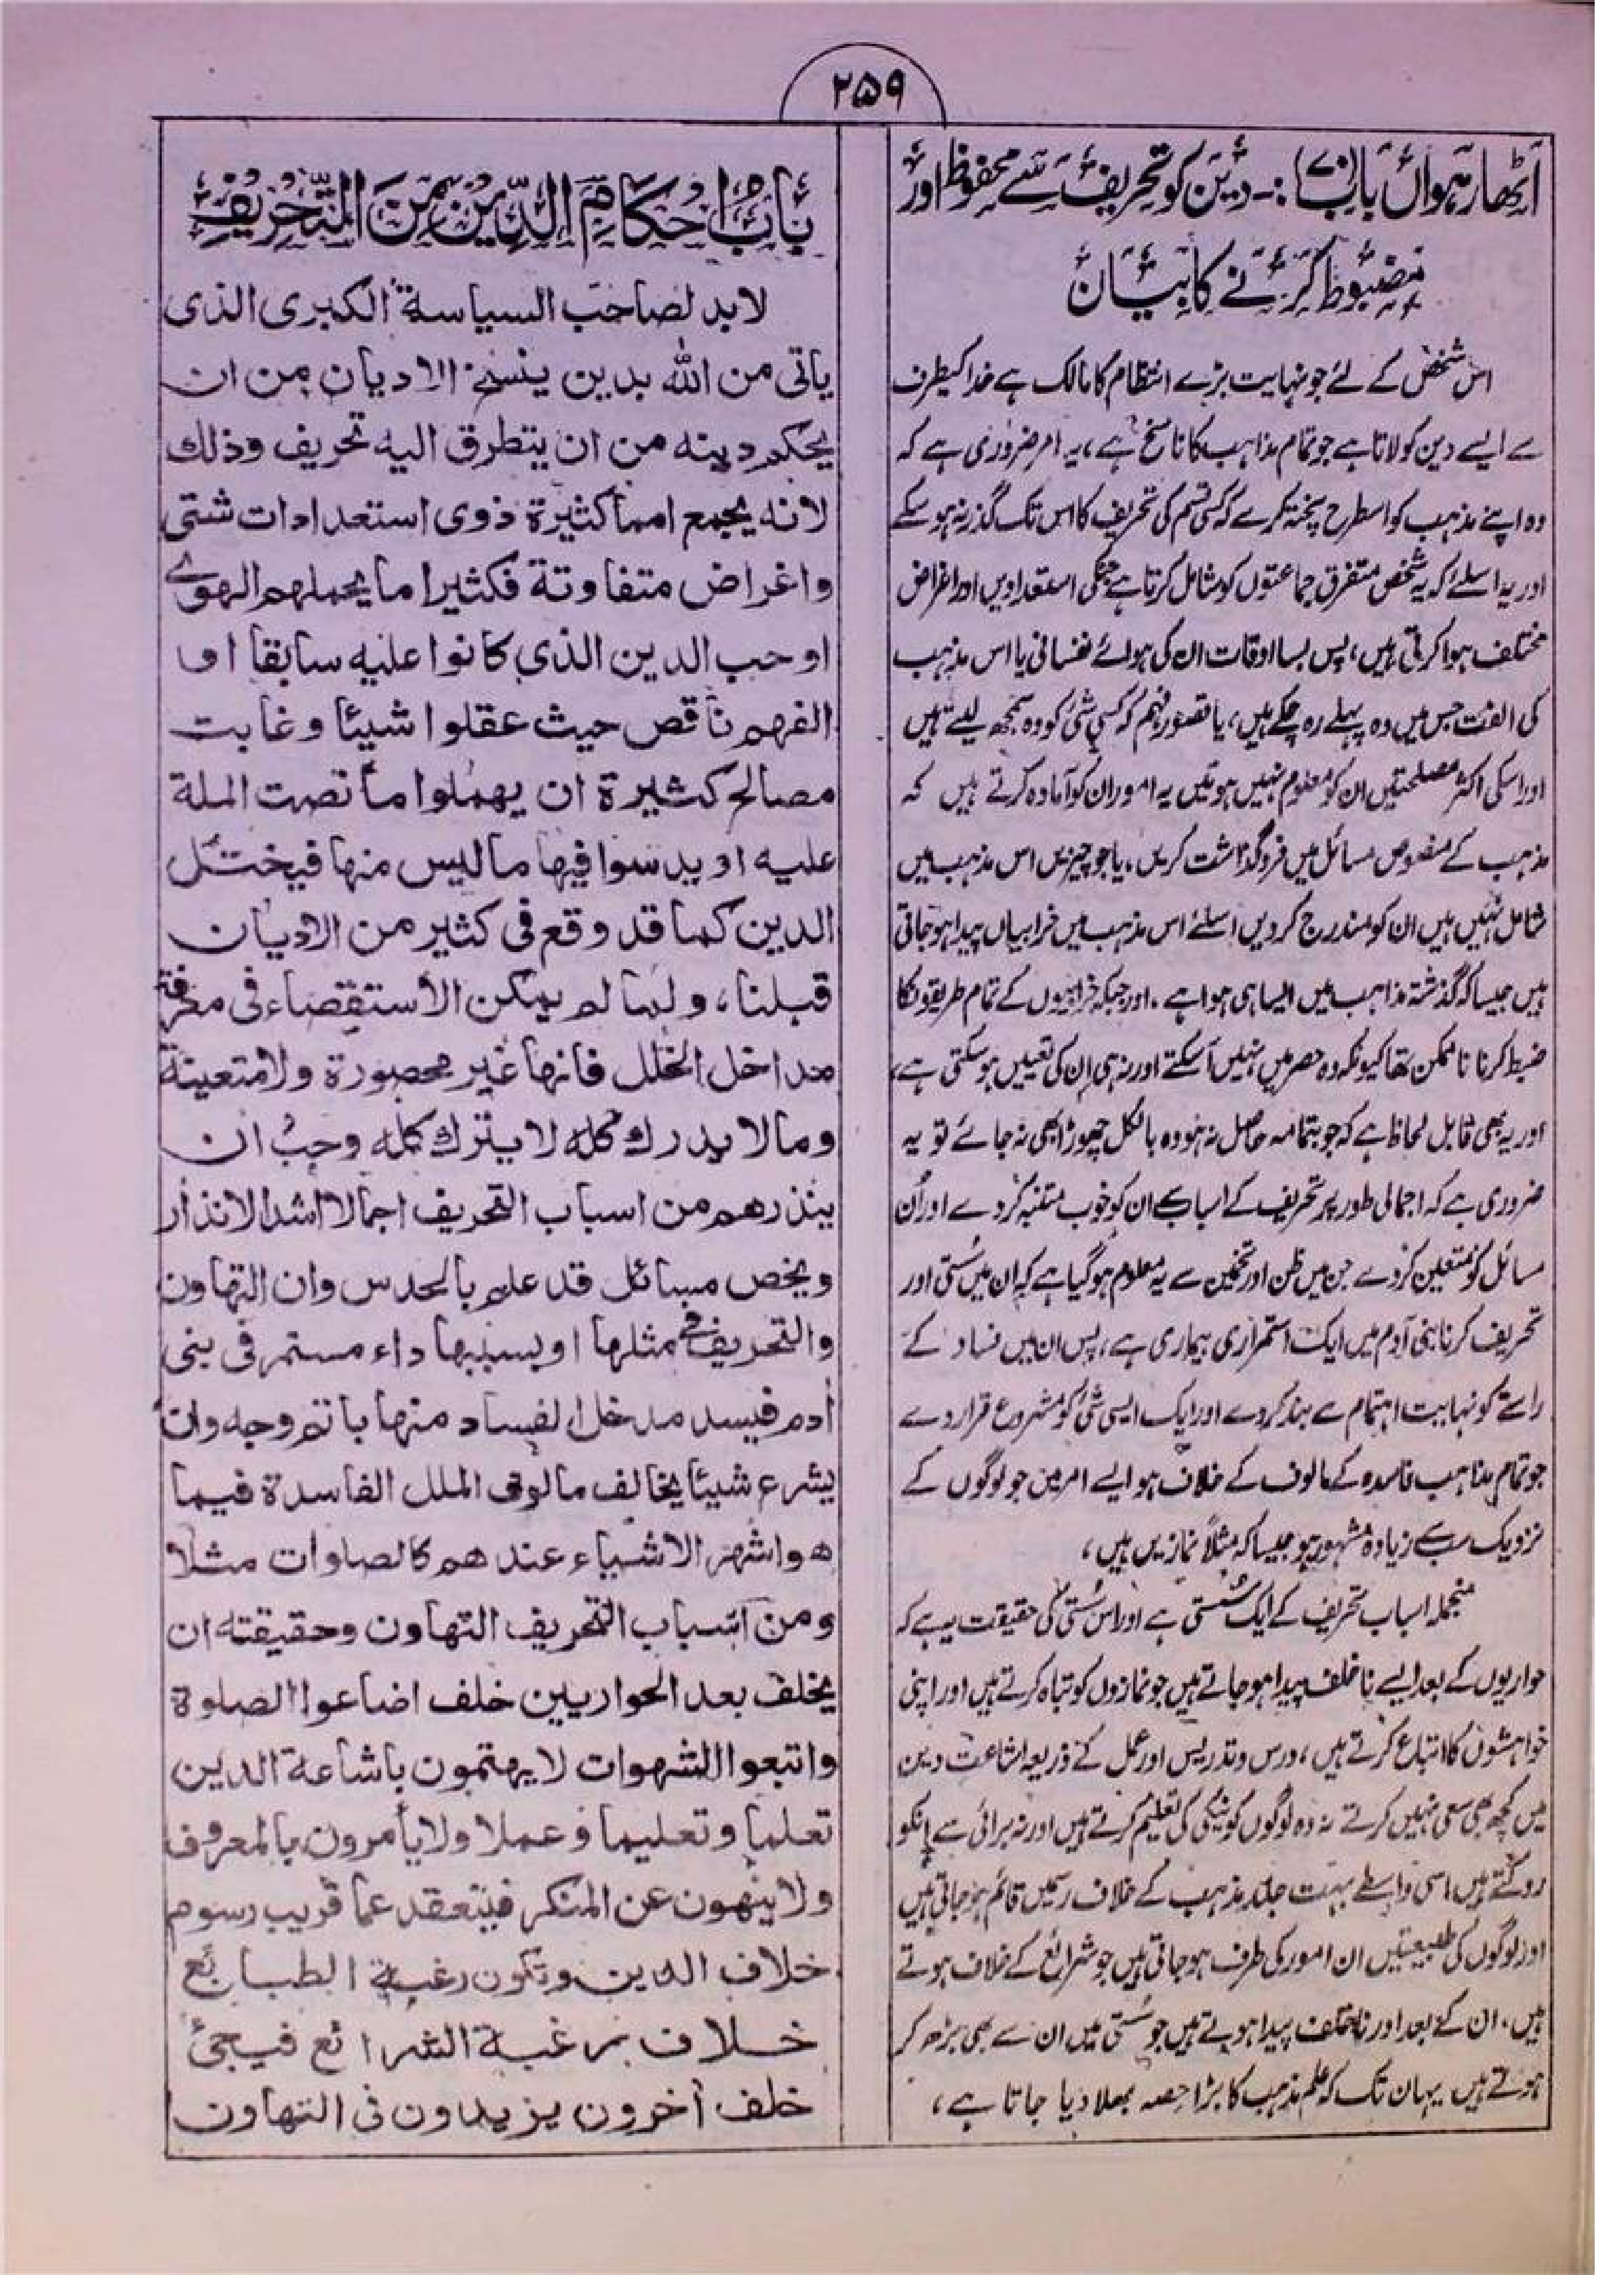 ۲۵۹
اٹھارہواں باب (۷۰) :۔ دین کو تحریف سے محفوظ اور
مضبوط کرنے کا بیان
اس شخص کے لئے جو نہایت بڑے انتظام کا مالک ہے خدا کیطرف
سے ایسے دین کو لاتا ہے جو تمام مذاہب کا ناسخ ہے، یہ امر ضروری ہے کہ
وہ اپنے مذہب کو اسطرح پختہ کرے کہ کسی قسم کی تحریف کا اس تک گذر نہ ہو سکے
اور یہ اسلئے کہ یہ شخص متفرق جماعتوں کو شامل کرتا ہے جنکی استعدادیں اور اغراض
مختلف ہوا کرتی ہیں، پس بسا اوقات ان کی ہوائے نفسانی یا اس مذہب
کی الفت جس میں وہ پہلے رہ چکے ہیں، یا قصور فہم کہ کسی شئ کو وہ سمجھ لیتے ہیں
اور اسکی اکثر مصلحتیں ان کو معلوم نہیں ہوتیں یہ امور ان کو آمادہ کرتے ہیں کہ
مذہب کے منصوص مسائل میں فروگذاشت کریں، یا جو چیزیں اس مذہب میں
شامل نہیں ہیں ان کو مندرج کر دیں اسلئے اس مذہب میں خرابیاں پیدا ہو جاتی
ہیں جیسا کہ گذشتہ مذاہب میں ایسا ہی ہوا ہے۔ اور جبکہ خرابیوں کے تمام طریقونکا
ضبط کرنا ناممکن تھا کیونکہ وہ حصر میں نہیں آسکتے اور نہ ہی ان کی تعیین ہو سکتی ہے،
اور یہ بھی قابل لحاظ ہے کہ جو بتمامہ حاصل نہ ہو وہ بالکل چھوڑا بھی نہ جائے تو یہ
ضروری ہے کہ اجمالی طور پر تحریف کے اسباب سے ان کو خوب متنبہ کر دے اور اُن
مسائل کو متعین کر دے جن میں ظن اور تخمین سے یہ معلوم ہو گیا ہے کہ ان میں سُستی اور
تحریف کرنا بنی آدم میں ایک استمراری بیماری ہے، پس ان میں فساد کے
راستے کو نہایت اہتمام سے بند کر دے اور ایک ایسی شئ کو مشروع قرار دے
جو تمام مذاہب فاسدہ کے مالوف کے خلاف ہو ایسے امر میں جو لوگوں کے
نزدیک سب سے زیادہ مشہور ہو جیسا کہ مثلاً نمازیں ہیں،
منجملہ اسباب تحریف کے ایک سُستی ہے اور اس سُستی کی حقیقت یہ ہے کہ
حواریوں کے بعد ایسے ناخلف پیدا ہو جاتے ہیں جو نمازوں کو تباہ کرتے ہیں اور اپنی
خواہشوں کا اتباع کرتے ہیں، درس و تدریس اور عمل کے ذریعہ اشاعت دین
میں کچھ بھی سعی نہیں کرتے نہ وہ لوگوں کو نیکی کی تعلیم کرتے ہیں اور نہ برائی سے انکو
روکتے ہیں اسی واسطے بہت جلد مذہب کے خلاف رسمیں قائم ہو جاتی ہیں
اور لوگوں کی طبیعتیں ان امور کی طرف ہو جاتی ہیں جو شرائع کے خلاف ہوتے
ہیں، ان کے بعد اور ناخلف پیدا ہوتے ہیں جو سُستی میں ان سے بھی بڑھ کر
ہوتے ہیں یہاں تک کہ علم مذہب کا بڑا حصہ بھلا دیا جاتا ہے،
بَابُ اِحْكَامِ الدِّيْنِ مِنَ التَّحْرِيْفِ
لابد لصاحب السياسة الكبرى الذى
ياتى من الله بدين ينسخ الاديان من ان
يحكم دينه من ان يتطرق اليه تحريف وذلك
لانه يجمع امما كثيرة ذوى استعدادات شتى
واغراض متفاوتة فكثيرا ما يحملهم الهوى
او حب الدين الذى كانوا عليه سابقا او
الفهم ناقص حيث عقلوا شيئا وغابت
مصالح كثيرة ان يهملوا ما نصت الملة
عليه او يدسوا فيها ما ليس منها فيختل
الدين كما قد وقع فى كثير من الاديان
قبلنا، ولما لم يمكن الاستقصاء فى معرفة
مداخل الخلل فانها غير محصورة ولا متعينة
وما لا يدرك كله لا يترك كله وجب ان
ينذرهم من اسباب التحريف اجمالا اشد الانذار
ويخص مسائل قد علم بالحدس وان التهاون
والتحريف فى مثلها او بسببها داء مستمر فى بنى
أدم فيسد مدخل الفساد منها باتم وجه وان
يشرع شيئا يخالف مالوف الملل الفاسدة فيما
هو اشهر الاشياء عندهم كالصلوات مثلا
ومن اسباب التحريف التهاون وحقيقته ان
يخلف بعد الحواريين خلف اضاعوا الصلوة
واتبعوا الشهوات لا يهتمون باشاعة الدين
تعلما وتعليما وعملا ولا يأمرون بالمعروف
ولا ينهون عن المنكر فينعقد عما قريب رسوم
خلاف الدين وتكون رغبة الطبائع
خلاف رغبة الشرائع فيجئ
خلف أخرون يزيدون فى التهاون